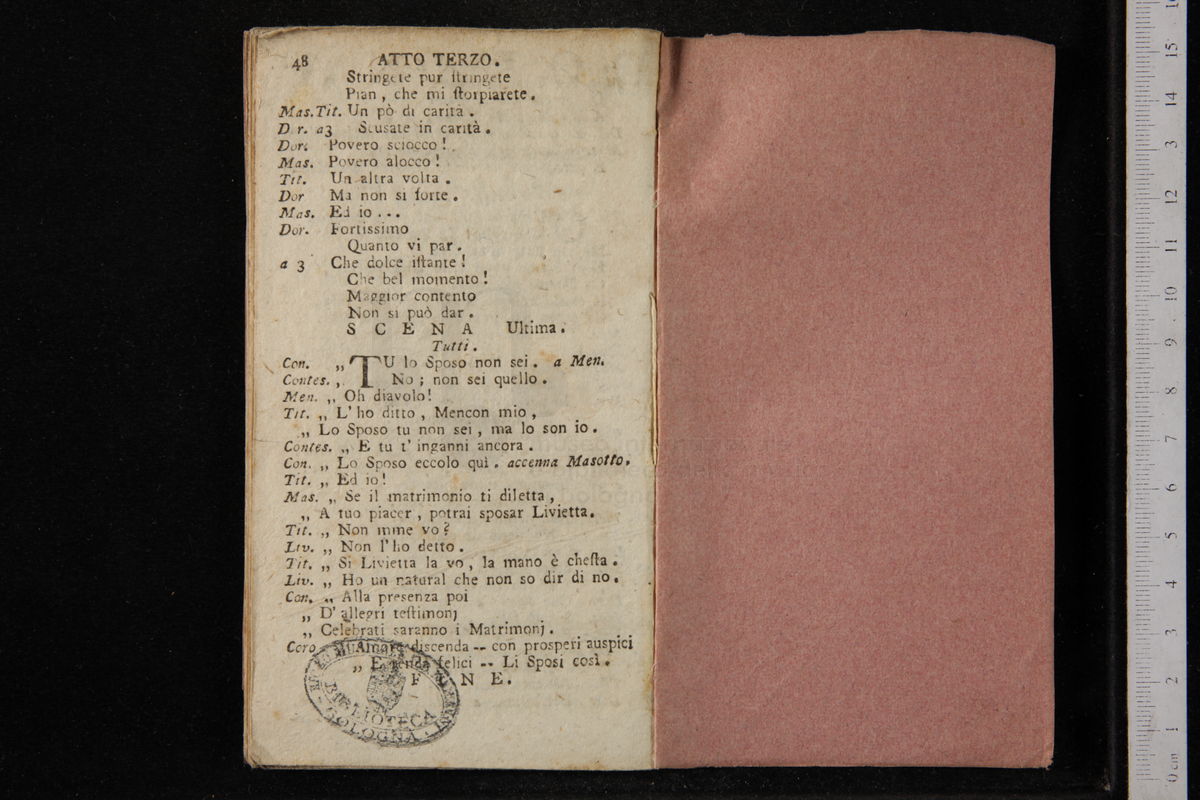 48 ATTO TERZO.
Stringete pur ſtringete
Pian, che mi ſtorpiarete.
Mas. Tit. Un pò di carità.
Dor. a3 Scusate in carità.
Dor. Povero sciocco!
Mas. Povero alocco!
Tit. Un altra volta.
Dor Ma non si forte.
Mas. Ed io...
Dor. Fortissimo
Quanto vi par.
a 3 Che dolce iſtante!
Che bel momento!
Maggior contento
Non si può dar.
SCENA Ultima.
Tutti.
Con. „ TU lo Sposo non sei. a Men.
Contes. , No; non sei quello.
Men. „ Oh diavolo!
Tit. „ L' ho ditto, Mencon mio,
„ Lo Sposo tu non sei, ma lo son io.
Contes. „ E tu t' inganni ancora.
Con. „ Lo Sposo eccolo quì. accenna Masotto.
Tit. „ Ed io!
Mas. „ Se il matrimonio ti diletta,
„ A tuo piacer, potrai sposar Livietta.
Tit. „ Non mme vo?
Liv. „ Non l'ho detto.
Tit. „ Si Livietta la vo, la mano è cheſta.
Liv. „ Ho un natural che non so dir di no.
Con. „ Alla presenza poi
„ D' allegri teſtimonj
„ Celebrati saranno i Matrimonj.
Coro „ Amore discenda -- con prosperi auspici
„ E renda felici -- Li Sposi così.
FINE.
BIBLIOTECA
BOLOGNA
0 cm 1 2 3 4 5 6 7 8 9 10 11 12 3 14 15